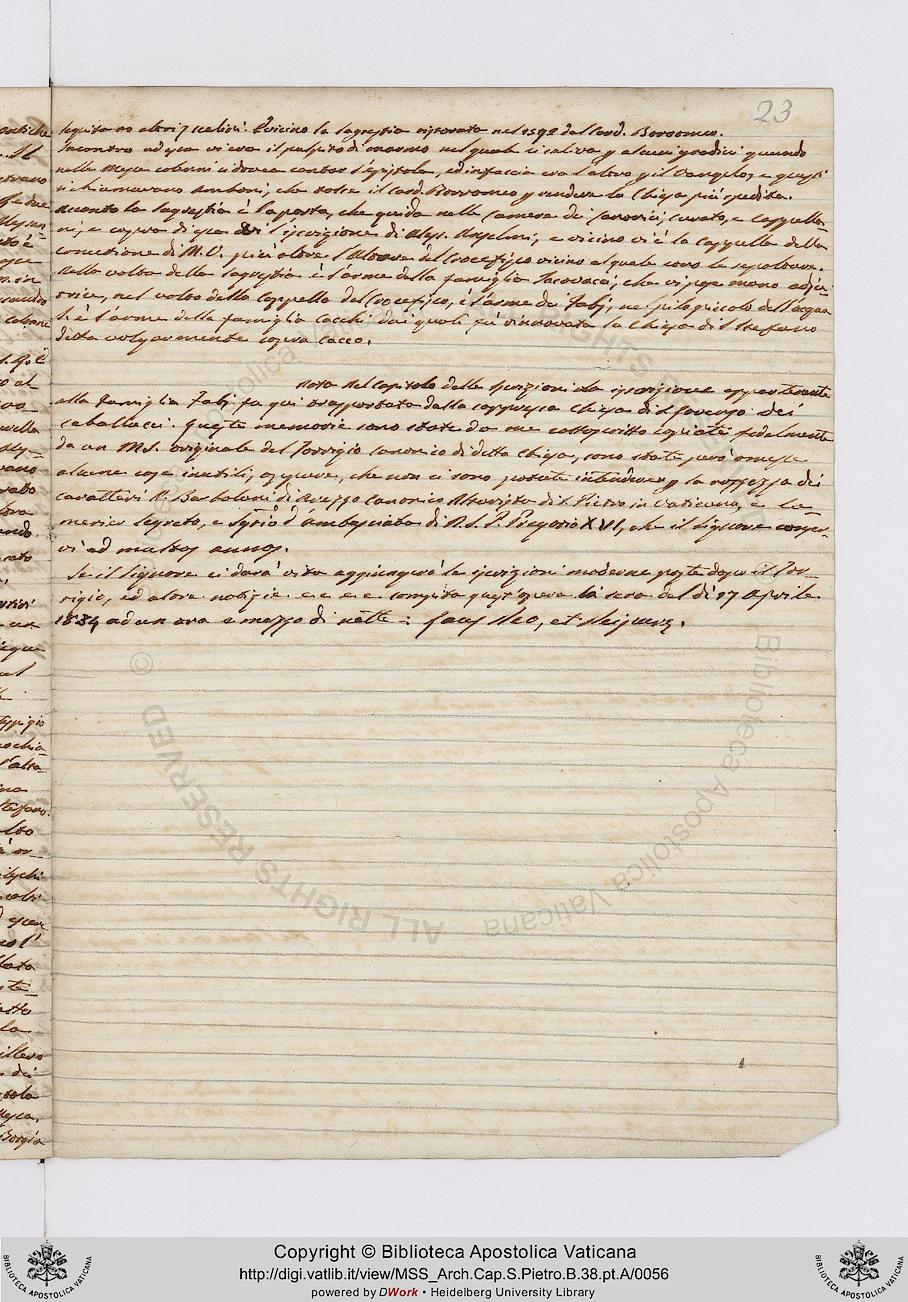 23
seguita no altri 7 scalini. E vicino la sagrestia risarcita nel 1592 dal Card. Borromeo.
Incontro ad essa vi era il pulpito di marmo nel quale si saliva p alcuni gradini quando
nelle Messe solenni si dovea cantar l'Epistola, ed in faccia era l'altro p il Vangelo, e questi
si chiamavano Amboni, che tolse il Card. Borromeo p rendere la Chiesa più spedita.
Accanto la sagrestia è la porta, che guida nelle Camere de Canonici, Curato, e Cappella-
ni, e sopra di essa l'iscrizione di Aless. Anselmi, e vicino vi è la Cappella della
Concezione di M.V. più oltre l'Altare del Crocefisso vicino al quale sono le sepolture.
Nella volta della sagrestia è l'arme della famiglia Jacovacci, che vi pose mano
nel volto della Cappella del Crocefisso, è l'arme de Fabj, nel pilo piccolo dell'acqua
S. è l'arme della famiglia Cacchi dai quali fù rinovata la Chiesa di S. Stefano
detta volgarmente sopra Cacco.
Nota del Capitolo delle Iscrizioni. La iscrizione appartenente
alla famiglia Fabj fu quì trasportata dalla soppressa Chiesa di S. Lorenzo dei
Caballucci. Queste memorie sono state da me sottoscritto copiate fedelmente
da un MS. originale del Torrigio Canonico di detta Chiesa, sono state però omesse
alcune cose inutili, oppure, che non si sono potute intendere p la rozzezza dei
caratteri. Bartolini di Arezzo Canonico Altarista di S. Pietro in Vaticano, e Ca-
merier Segreto, e d'ambasciata di N.S.P. Gregorio XVI, che il Signore conser-
vi ad multos annos.
Se il Signore ci darà vita aggiungerò le iscrizioni moderne poste dopo il Tor-
rigio, ed altre notizie e e e e compita quest'opera la sera del dì 27 Aprile
1834 ad un ora e mezzo di notte: Laus Deo, et
© Biblioteca Apostolica Vaticana
ALL RIGHTS RESERVED
BIBLIOTECA APOSTOLICA VATICANA
Copyright © Biblioteca Apostolica Vaticana
http://digi.vatlib.it/view/MSS_Arch.Cap.S.Pietro.B.38.pt.A/0056
powered by DWork • Heidelberg University Library
BIBLIOTECA APOSTOLICA VATICANA